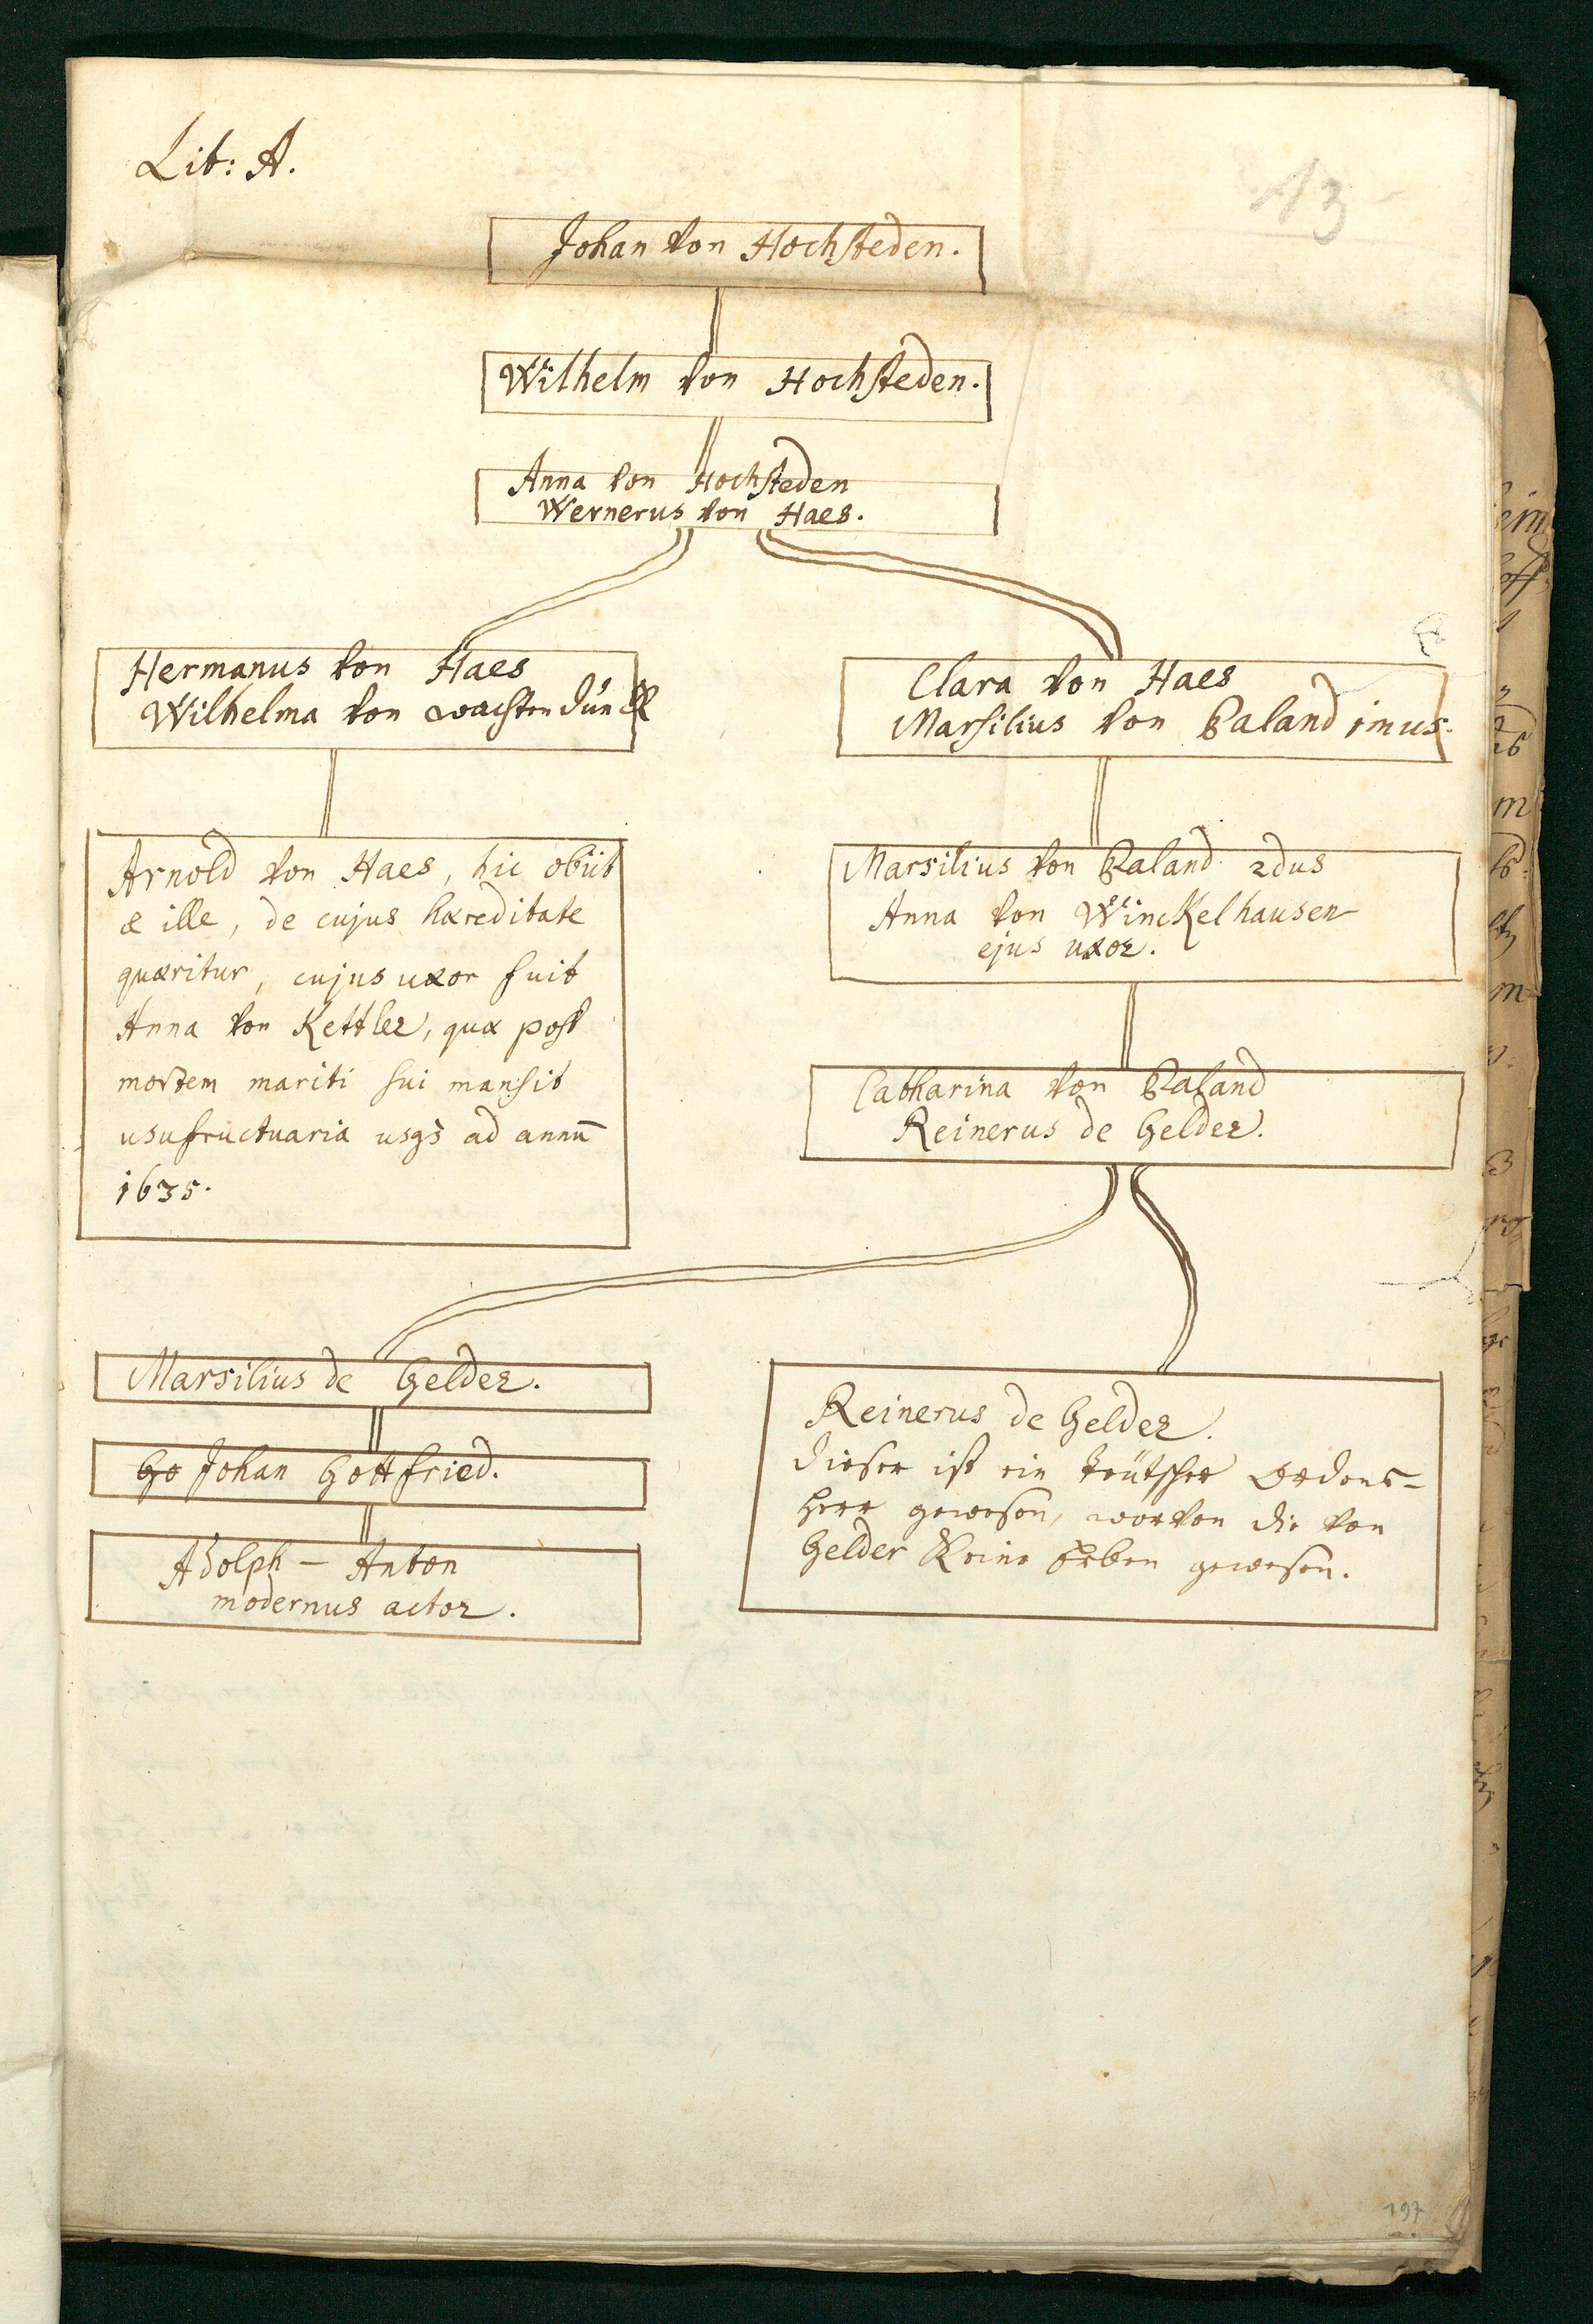 Lit: A.
13
Johan von Hochsteden.
Wilhelm von Hochsteden.
Anna von Hochsteden
Wernerus von Haes.
Hermanus von Haes
Wilhelma von wachtendünck
Clara von Haes
Marsilius von Paland 1mus.
Arnold von Haes, hic obiit
& ille, de cujus hæreditate
quæritur, cujus uxor fuit
Anna von Kettler, quæ post
mortem mariti sui mansit
usufructuaria usqs ad annū
1635.
Marsilius von Paland 2dus
Anna von Winckelhausen
ejus uxor.
Catharina von Paland
Reinerus de Gelder.
Marsilius de Gelder.
Go Johan Gottfried.
Adolph - Anton
modernus actor.
Reinerus de Gelder.
dieser ist ein teütscher Ordens-
herr gewesen, worvon die von
Gelder Keine Erben gewesen.
197